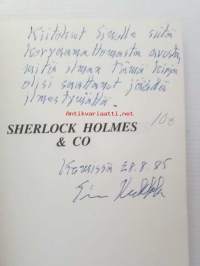 Kiitokset Sinulle siitä
korvaamattomasta avusta,
mitä ilman tämä kirja
olisi saattanut jäädä
ilmestymättä.
10€
SHERLOCK HOLMES
& CO
28.8.85
www.antikvariaatti.net